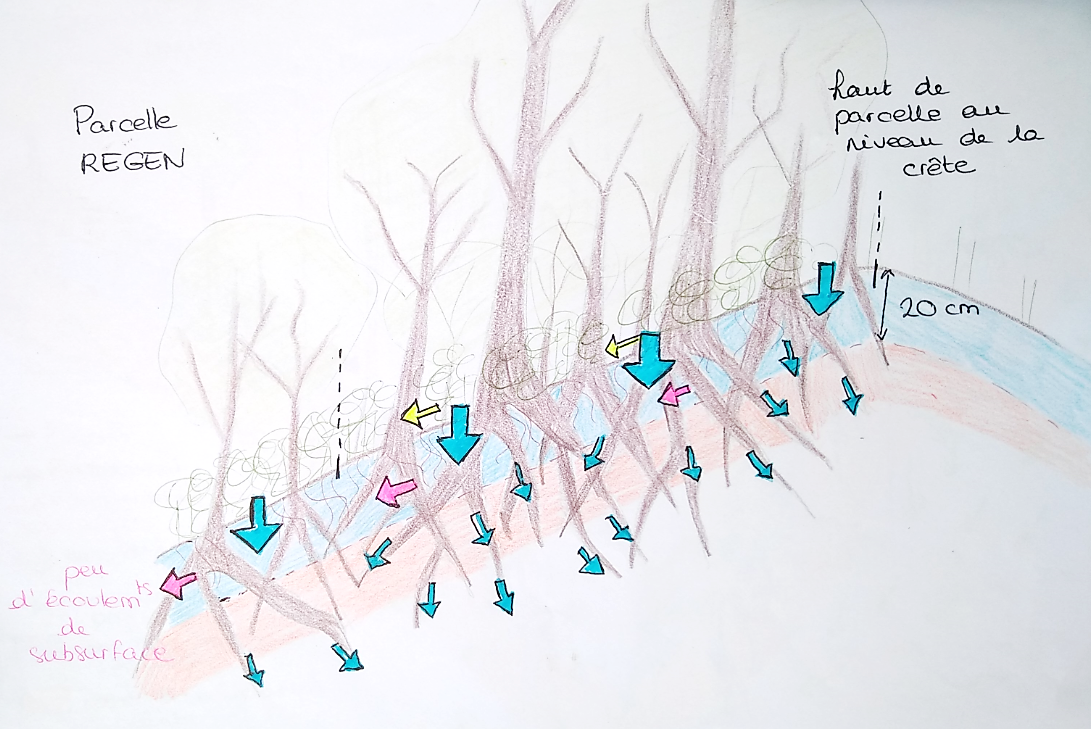 Parcelle
REGEN
haut de
parcelle au
niveau de la
crête
20 cm
peu
d'écoulemts
de
subsurface